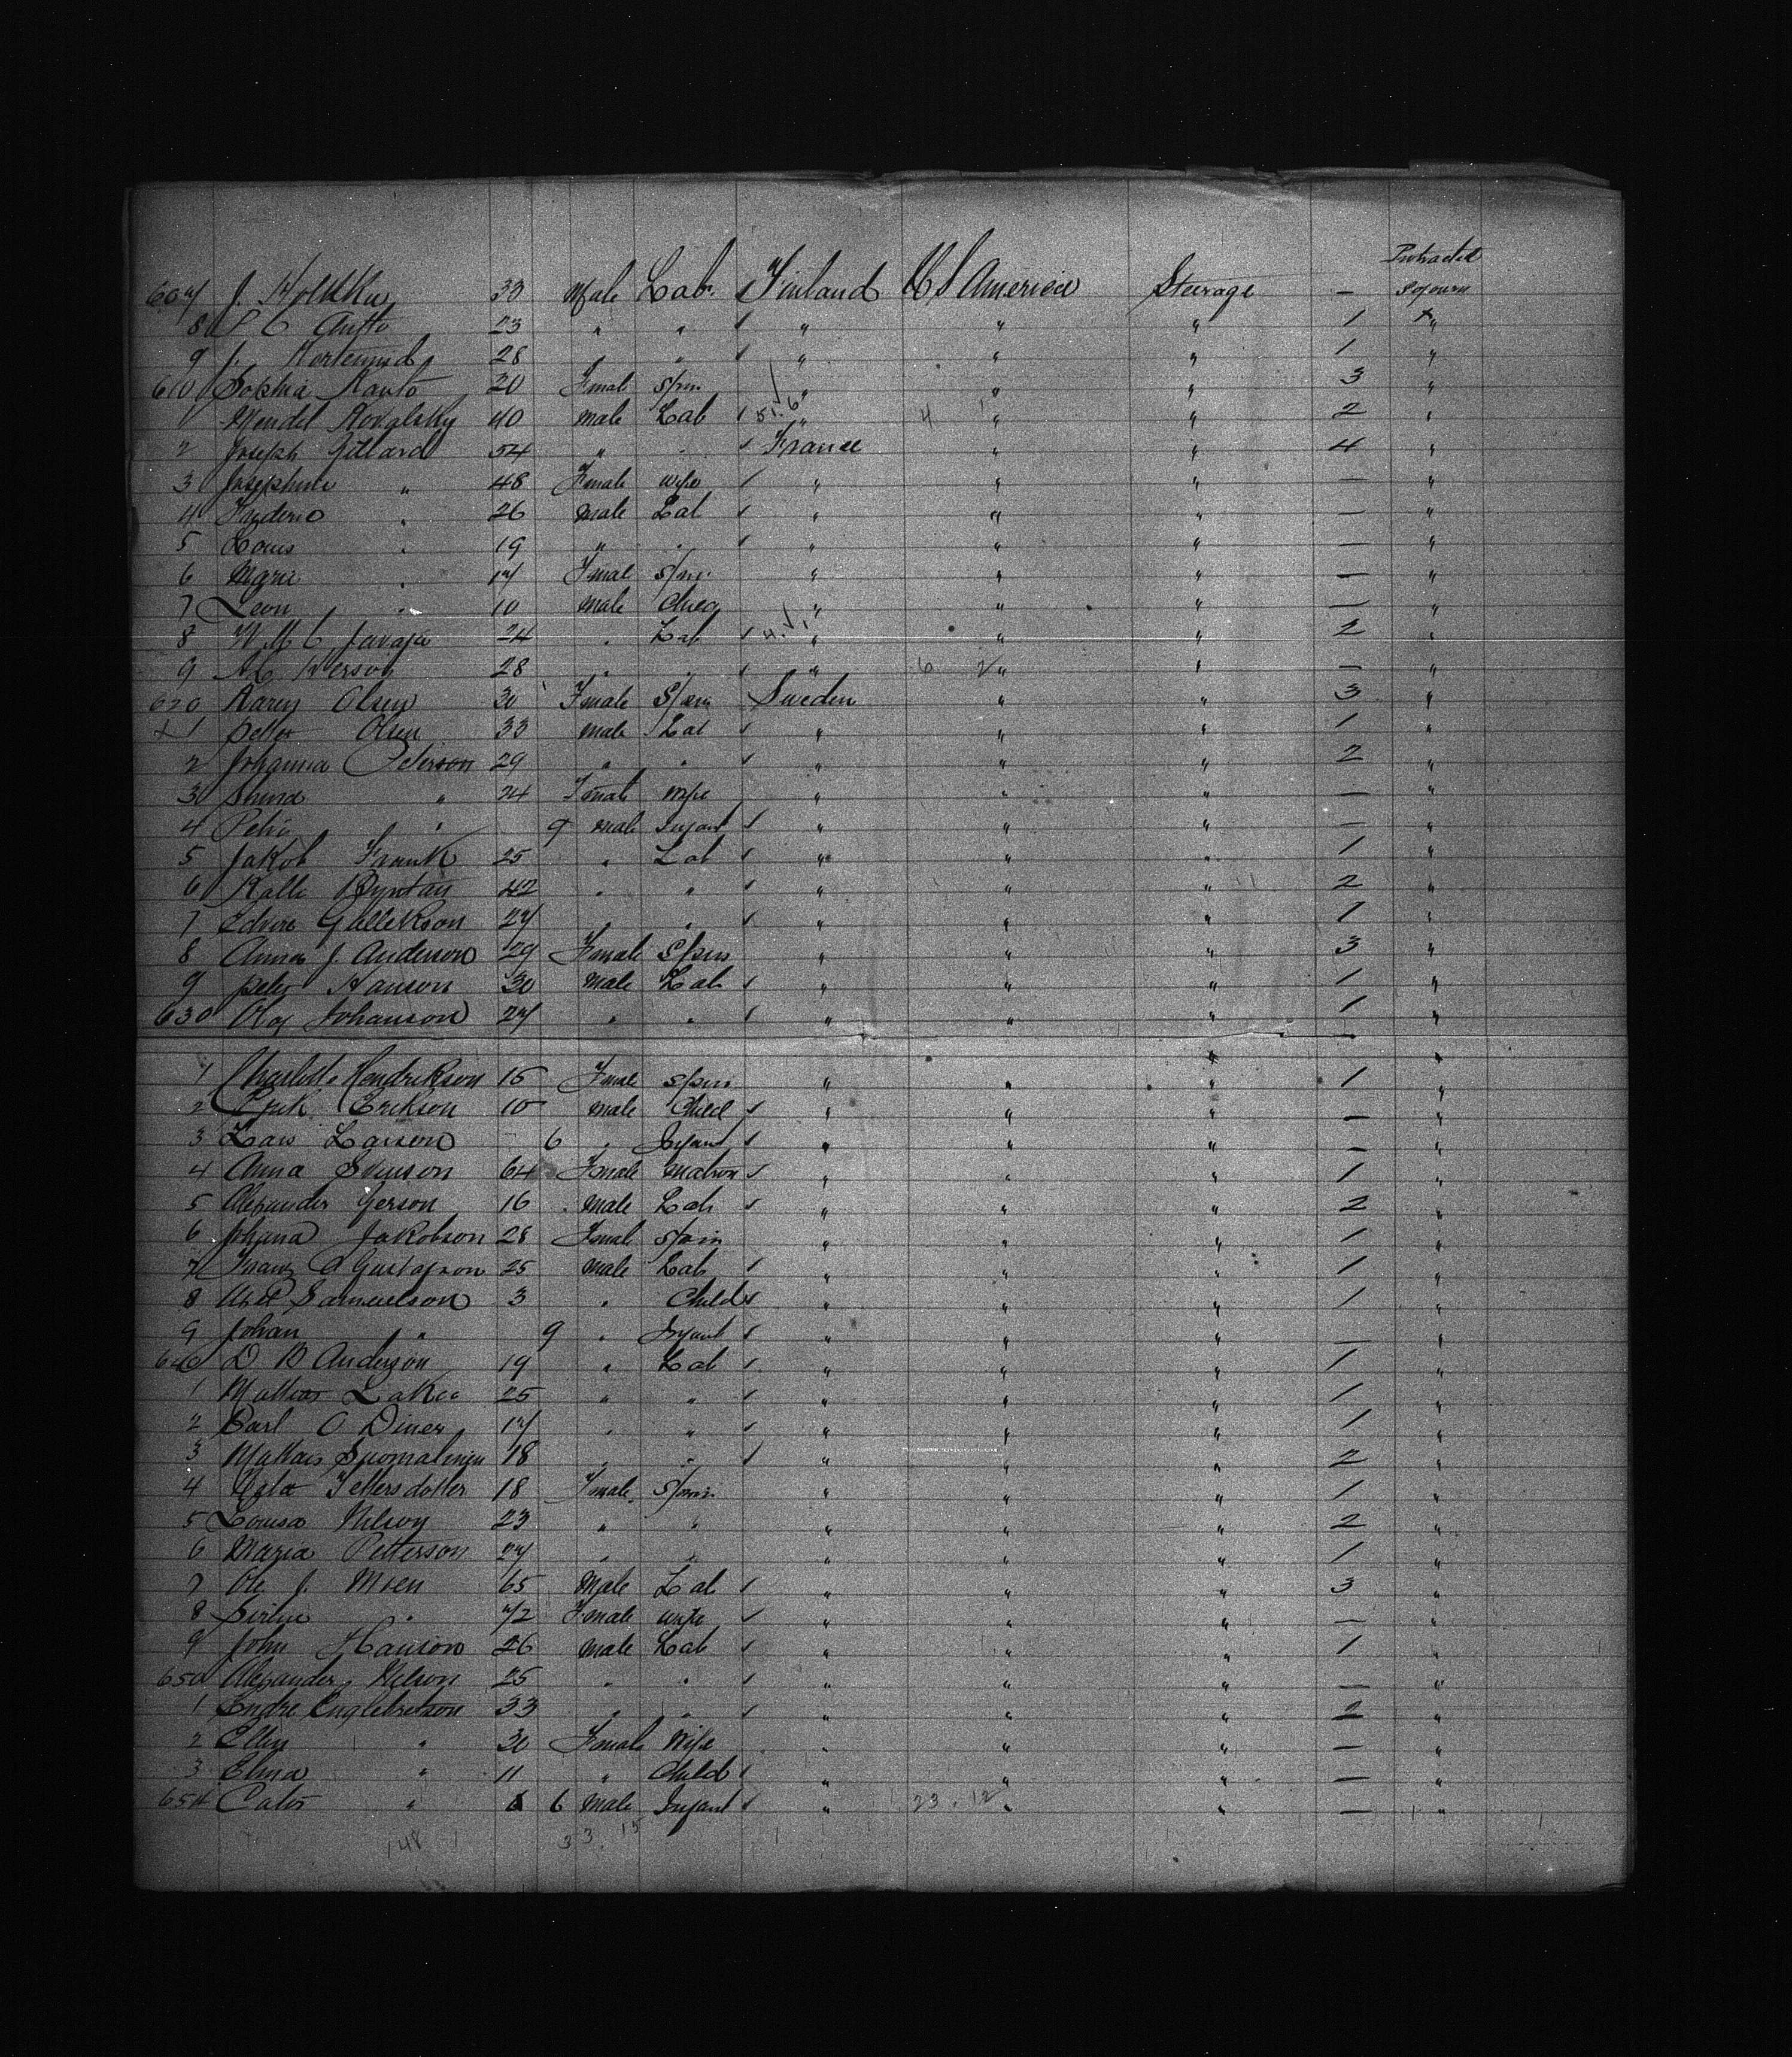 Protracted
607 J. Holkku 33 Male Lab. Finland U S America Steerage — Sojourn
8 P C Antto 23 " " " " " 1 "
9 J. 28 " " " " " 1 "
610 Sophia Kauto 20 Female Spin " " " 3 "
1 Mendel Kovalsky 40 male Lab 51.6 " 4 1 " " 2 "
2 Joseph Gillard 54 " " France " " 4 "
3 Josephine " 48 Female wife " " " — "
4 Frederic " 26 male Lab " " " — "
5 Louis " 19 " " " " " — "
6 Marie " 17 Female Spin. " " " — "
7 Leon " 10 male Child " " " — "
8 Javaja 24 " Lab 4.1 " " " 2 "
9 28 " " " 6 2 " " — "
620 Karen Olsen 30 Female Spin Sweden " " 3 "
1 Petter Olsen 33 male Lab " " " 1 "
2 Johanna Peterson 29 " " " " " 2 "
3 " 24 Female wife " " " — "
4 " 9 male Infant " " " — "
5 Jakob Frank 25 " Lab " " " 1 "
6 Kalle 42 " " " " " 2 "
7 27 " " " " " 1 "
8 Anna J. Anderson 29 Female Spin " " " 3 "
9 Peter Hanson 30 Male Lab " " " 1 "
630 Olaf Johanson 27 " " " " " 1 "
1 Charlotte Hendrikson 15 Female Spin " " " 1 "
2 Erik Erikson 10 male Child " " " — "
3 Lars Larson 6 " Infant " " " — "
4 Anna Svenson 64 Female matron " " " 1 "
5 Alexander Gerson 16 male Lab " " " 2 "
6 Johana Jakobson 28 Female Spin " " " 1 "
7 Franz A Gustafson 25 male Lab " " " 1 "
8 Samuelson 3 " Child " " " 1 "
9 Johan " 9 " Infant " " " — "
640 D B Anderson 19 " Lab " " " 1 "
1 Mathias Lakee 25 " " " " " 1 "
2 Carl O Diner 17 " " " " " 1 "
3 Mathais 18 " " " " " 2 "
4 Tettersdotter 18 Female Spin " " " 1 "
5 Louisa Nilson 23 " " " " " 2 "
6 Maria Petterson 27 " " " " " 1 "
7 Ole J. Moen 65 Male Lab " " " 3 "
8 " 72 Female wife " " " — "
9 John Hanson 26 male Lab " " " 1 "
650 Alexander Nelson 25 " " " " " — "
1 Endre Englebretson 33 " " " " " 2 "
2 Ellen " 30 Female Wife " " " — "
3 Elina " 11 " Child " " " — "
654 " 6 male Infant " 23. 12 " " — "
148 33. 15